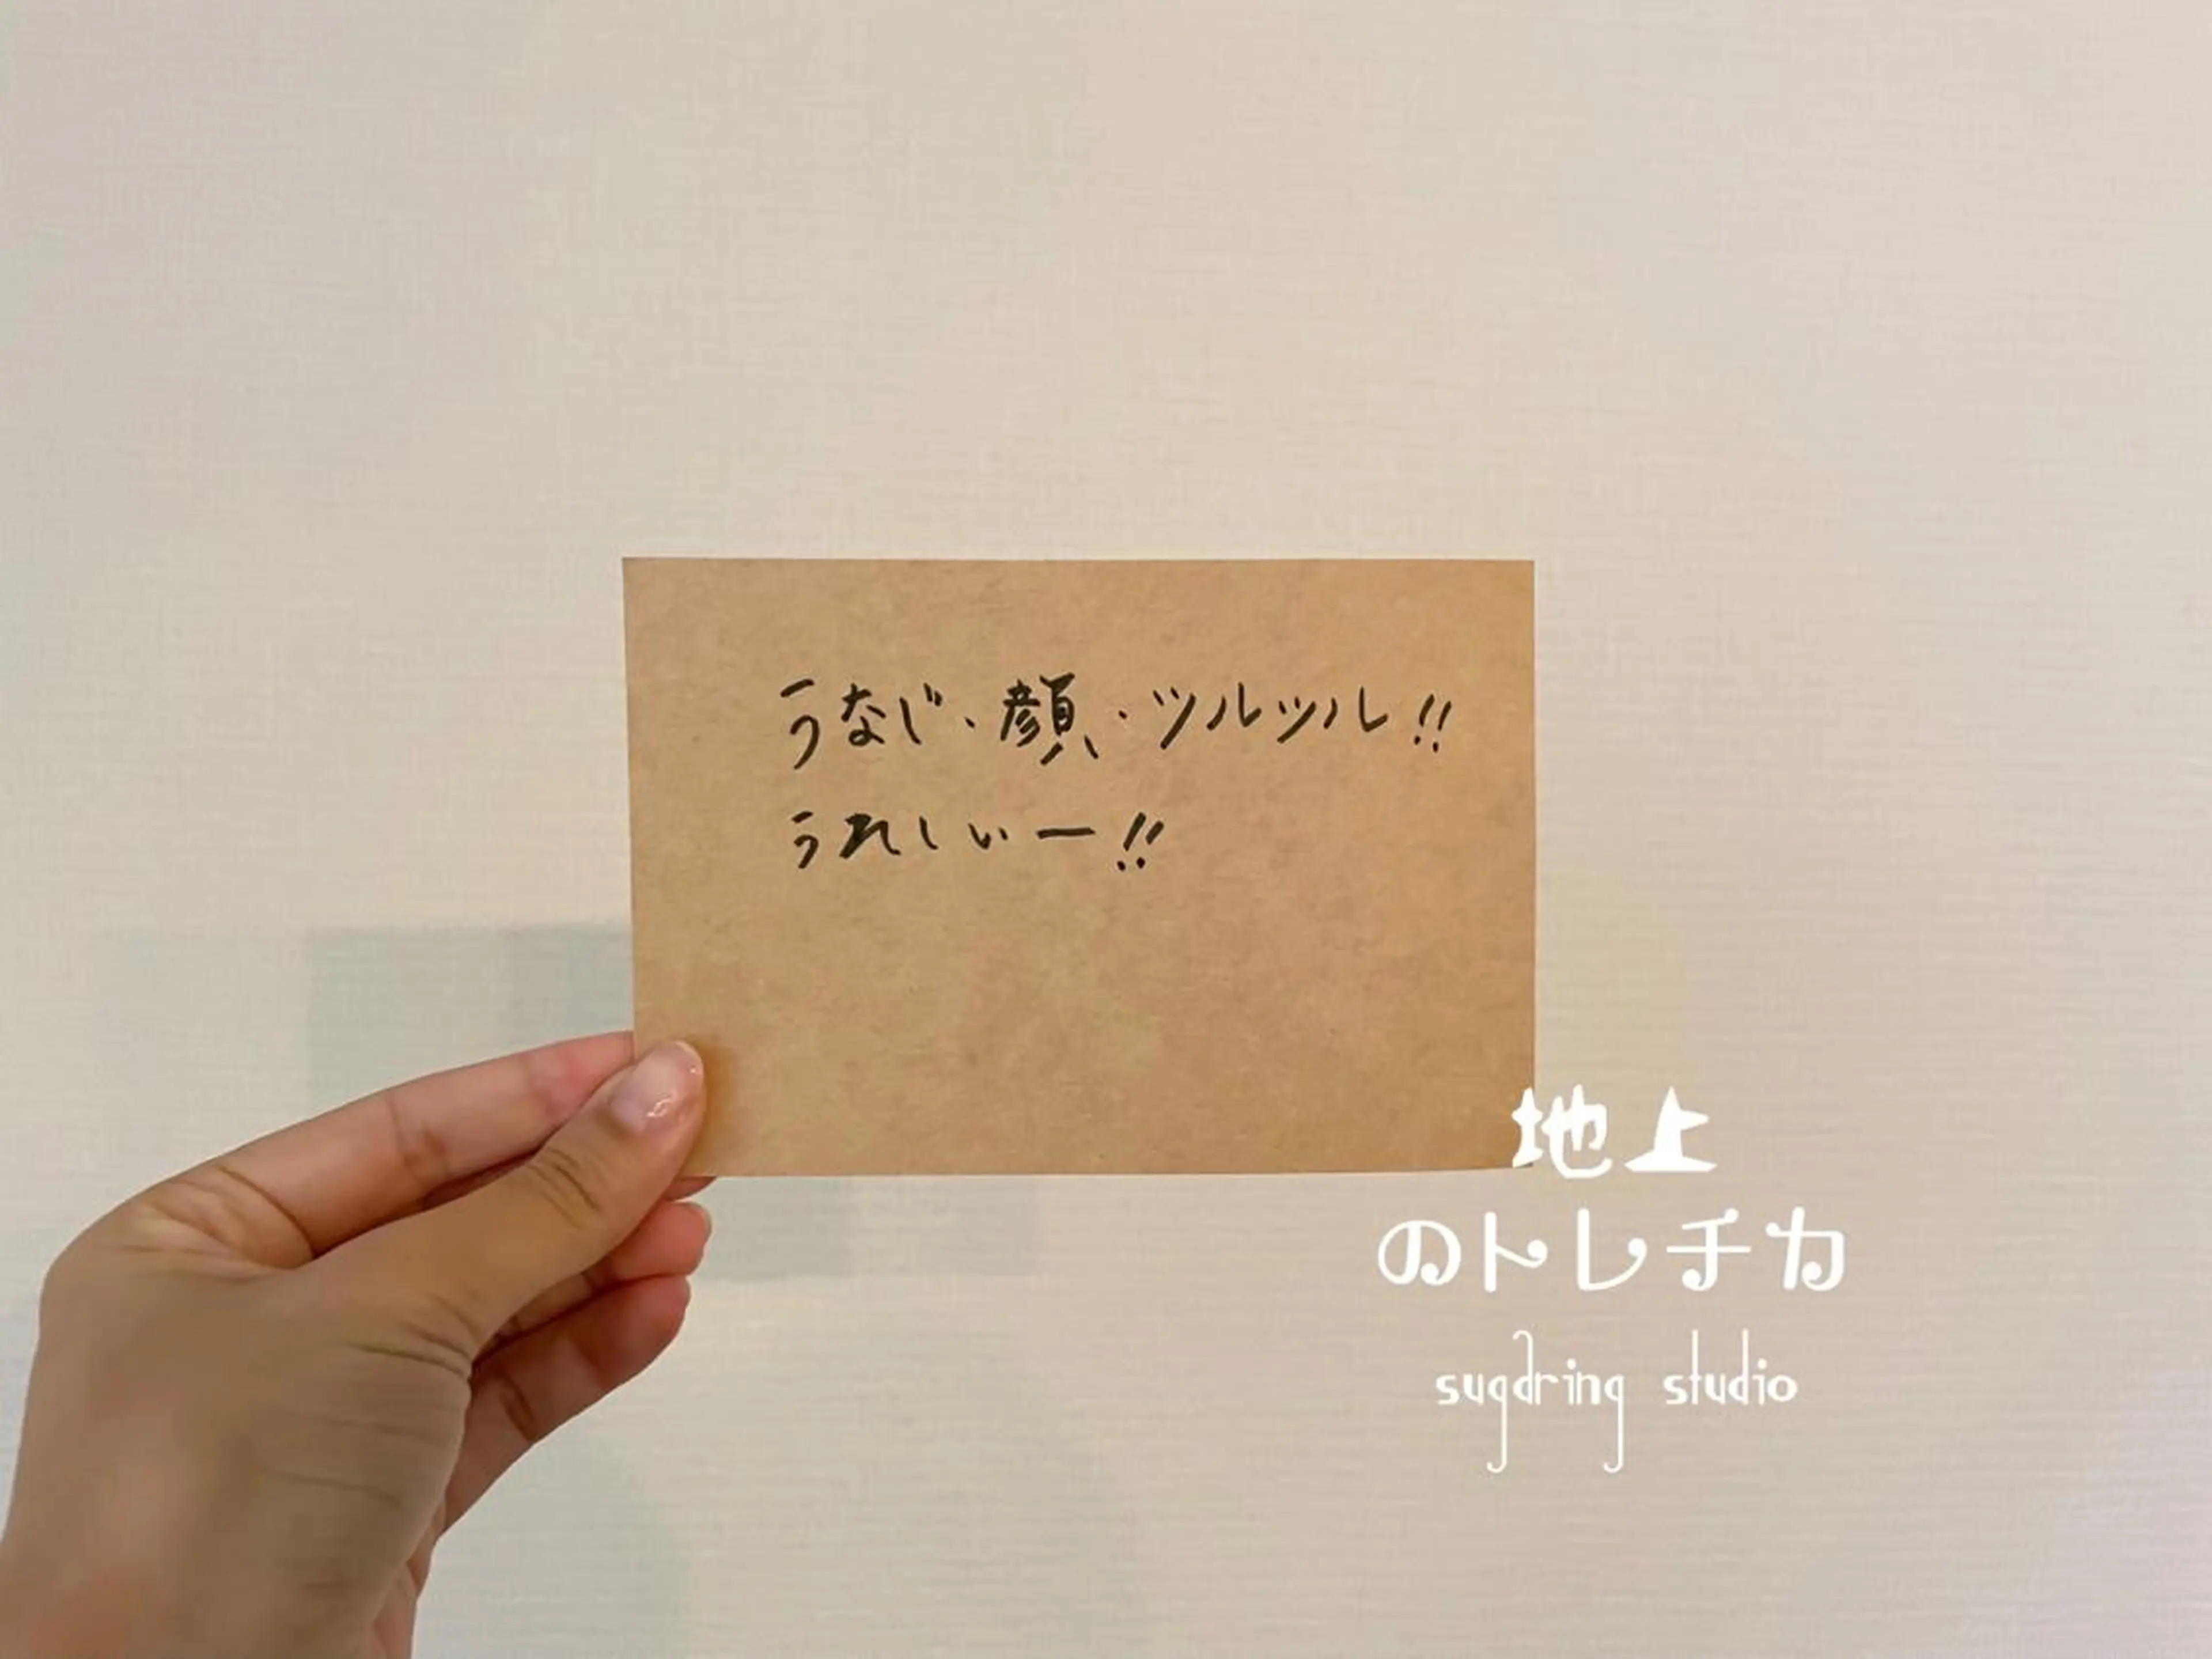 うなじ・顔・ツルツル!!
うれしぃー!!
地上
のトレチカ
sugaring studio